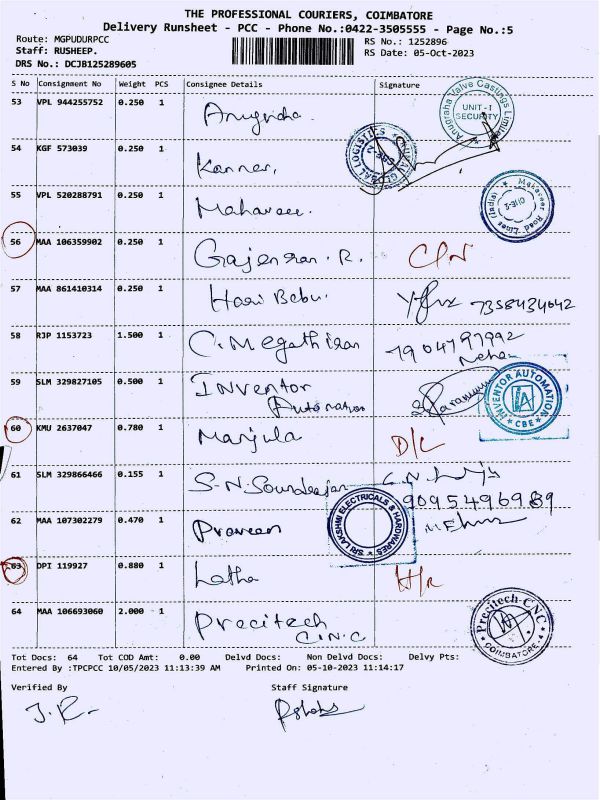 THE PROFESSIONAL COURIERS, COIMBATORE
Delivery Runsheet - PCC - Phone No.:0422-3505555 - Page No.:5
Route: MGPUDURPCC
RS No.: 1252896
Staff: RUSHEEP.
RS Date: 05-Oct-2023
DRS No.: DCJB125289605
S No Consignment No Weight PCS Consignee Details Signature
53 VPL 944255752 0.250 1 Anugraha
Anugraha Valve Castings Limited UNIT-I SECURITY
54 KGF 573039 0.250 1 Kanner.
LOGISTICS
55 VPL 520288791 0.250 1 Mahaveer.
Mahaveer Road Lines (India)
56 MAA 106359902 0.250 1 Gajendran. R. C/N
57 MAA 861410314 0.250 1 Hari Babu. 7358434042
58 RJP 1153723 1.500 1 C. Megathiran 7904797992
59 SLM 329827105 0.500 1 INventor
Automation
INVENTOR AUTOMATION IA CBE
60 KMU 2637047 0.780 1 Manjula D/L
61 SLM 329866466 0.155 1 S.N. Soundarajan
9095496989
62 MAA 107302279 0.470 1 Praveen
SRI LAKSHMI ELECTRICALS & HARDWARES
63 DPI 119927 0.880 1 Latha H/R
64 MAA 106693060 2.000 1 Precitech
C.N.C
Precitech CNC COIMBATORE-4
Tot Docs: 64 Tot COD Amt: 0.00 Delvd Docs: Non Delvd Docs: Delvy Pts:
Entered By :TPCPCC 10/05/2023 11:13:39 AM Printed On: 05-10-2023 11:14:17
Verified By Staff Signature
J.R.